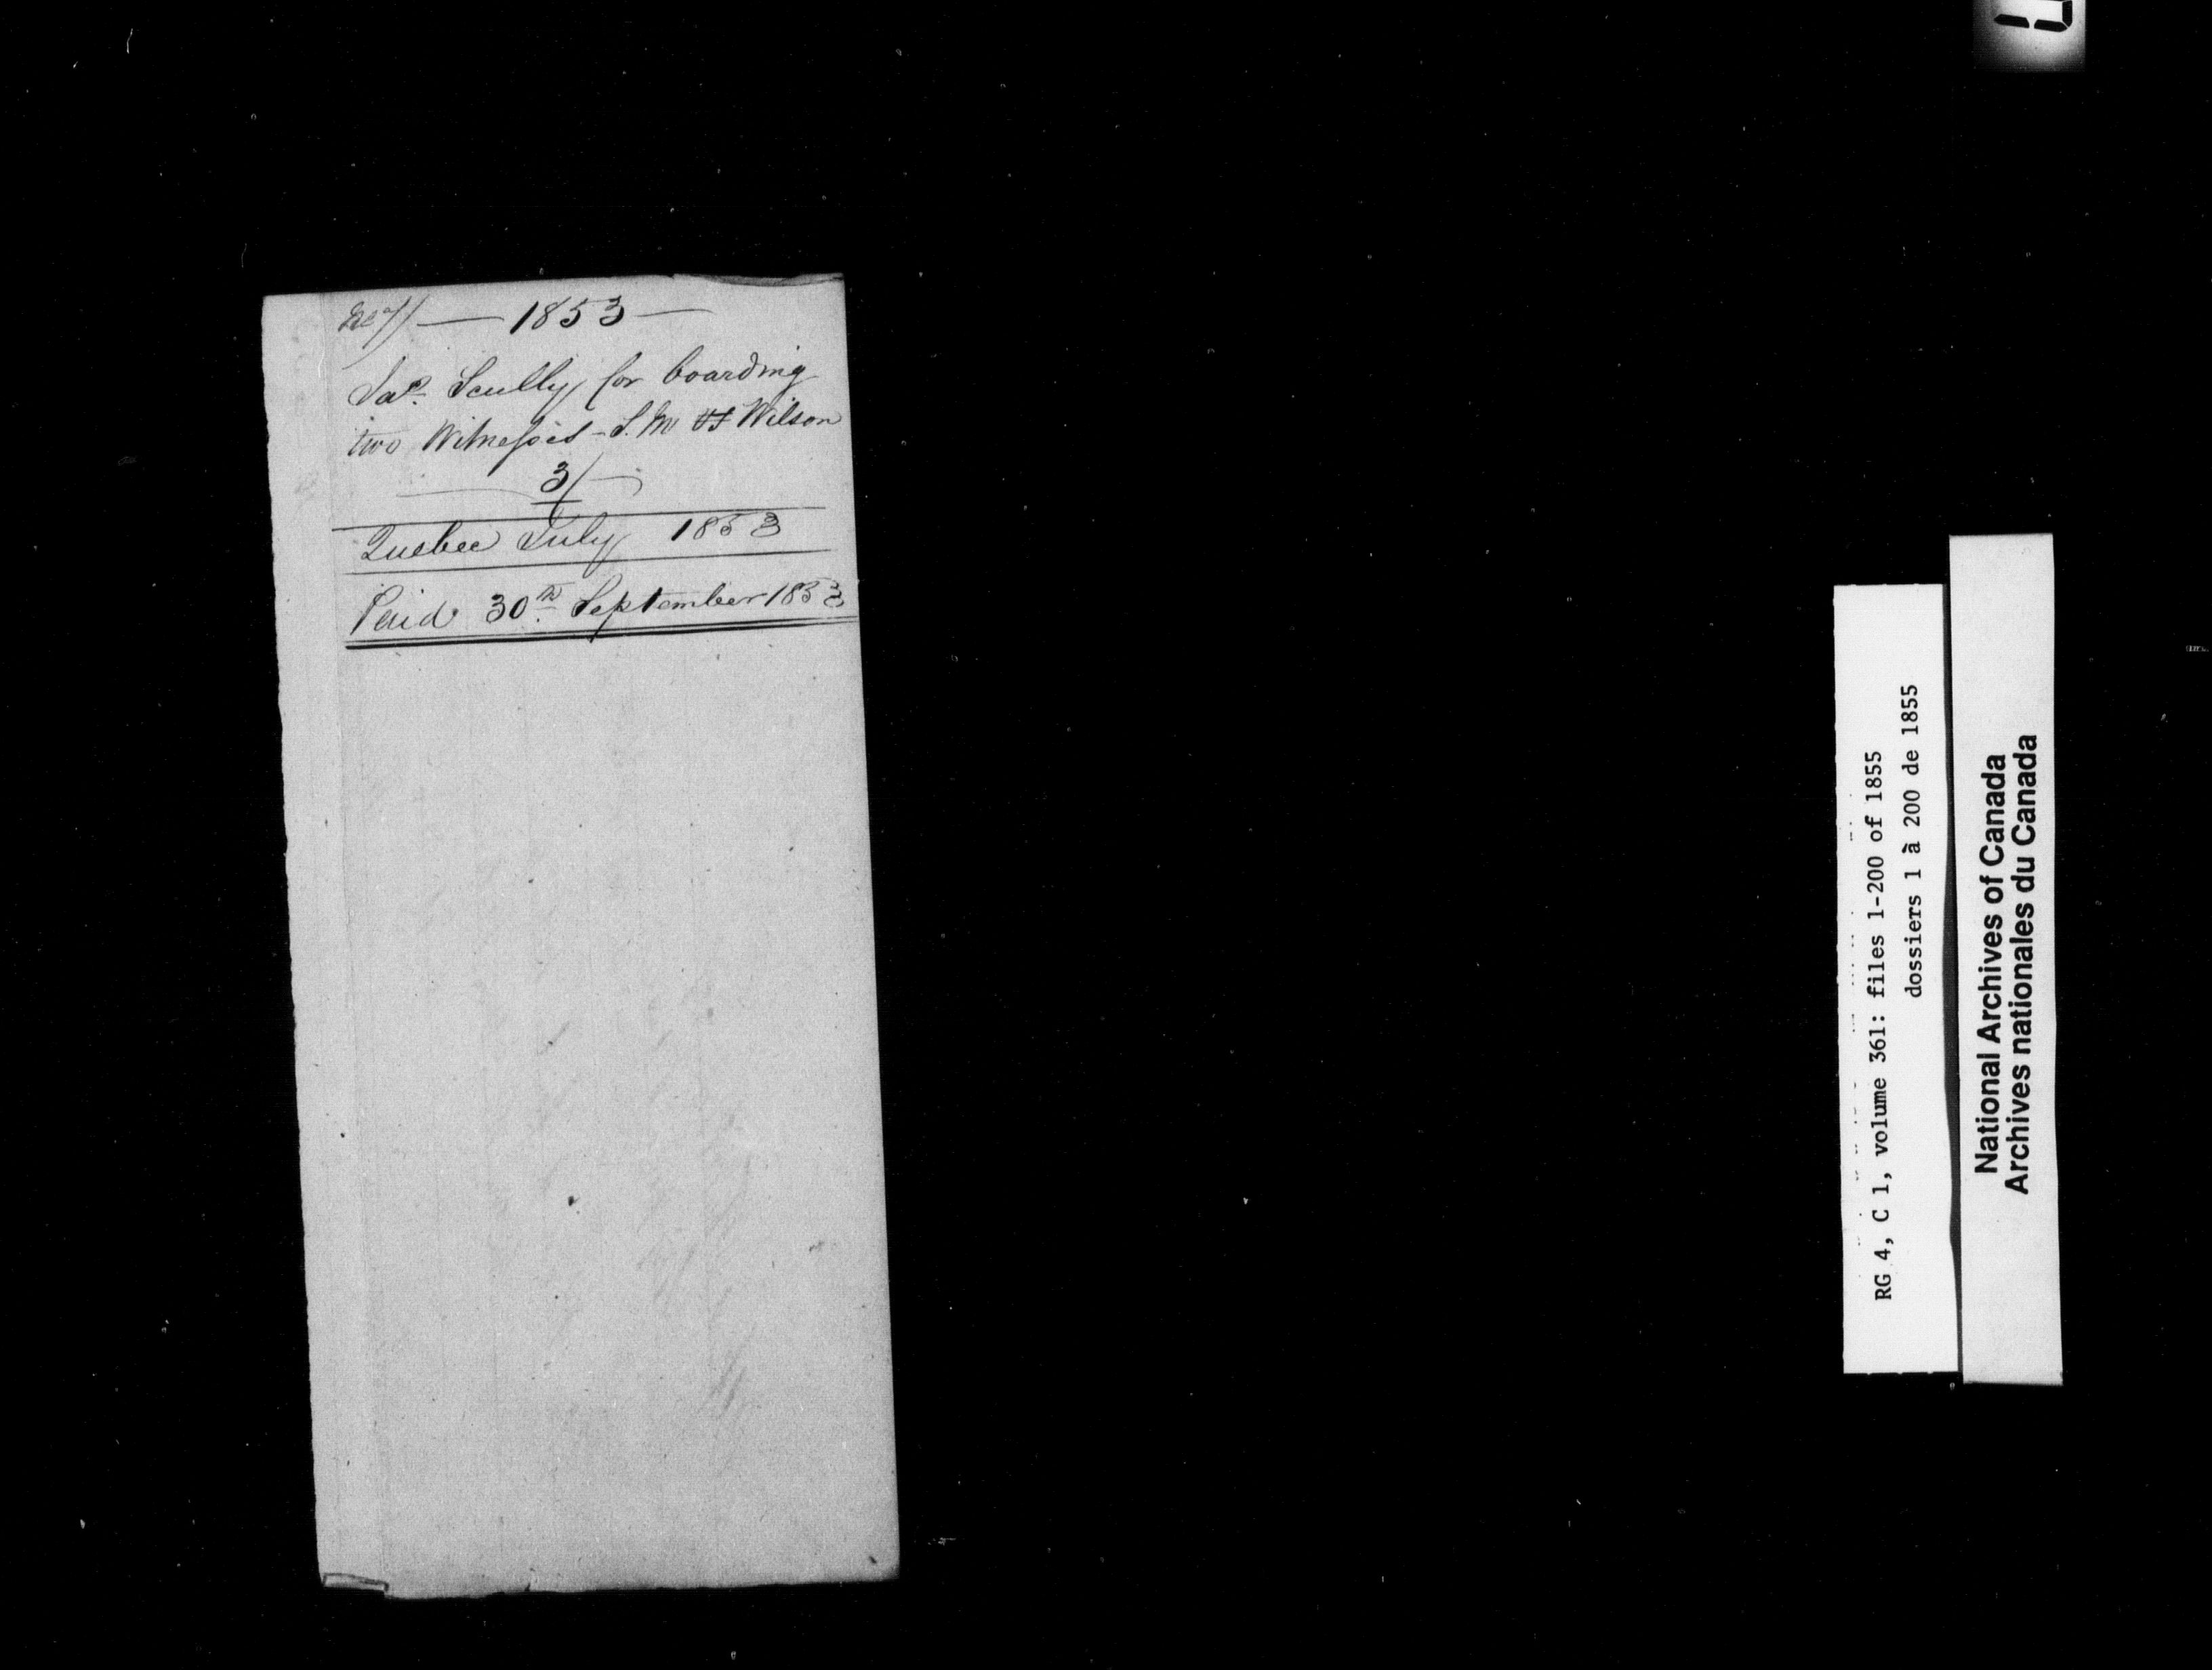 — 1853 —
Jas. Scully for boarding
two Witnesses - S. M Wilson
3/-
Quebec July 1853
Paid 30th September 1853
RG 4, C 1, volume 361: files 1-200 of 1855
dossiers 1 à 200 de 1855
National Archives of Canada
Archives nationales du Canada